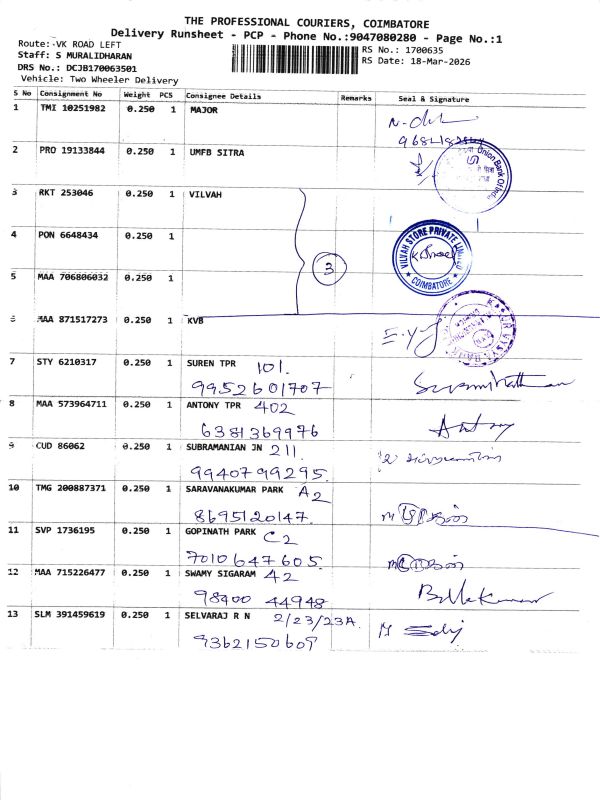 THE PROFESSIONAL COURIERS, COIMBATORE
Delivery Runsheet - PCP - Phone No.:9047080280 - Page No.:1
Route: VK ROAD LEFT
Staff: S MURALIDHARAN
DRS No.: DCJB170063501
Vehicle: Two Wheeler Delivery
RS No.: 1700635
RS Date: 18-Mar-2026
S No Consignment No Weight PCS Consignee Details Remarks Seal & Signature
1 TMI 10251982 0.250 1 MAJOR
2 PRO 19133844 0.250 1 UMFB SITRA
Union Bank Of India
3 RKT 253046 0.250 1 VILVAH
4 PON 6648434 0.250 1
3
VILVAH STORE PRIVATE LIMITED
COIMBATORE
5 MAA 706806032 0.250 1
6 MAA 871517273 0.250 1 KVB
7 STY 6210317 0.250 1 SUREN TPR 101.
9952601707
8 MAA 573964711 0.250 1 ANTONY TPR 402
6381369976
Antony
9 CUD 86062 0.250 1 SUBRAMANIAN JN 211
9940799295
10 TMG 200887371 0.250 1 SARAVANAKUMAR PARK A2
8695120147.
11 SVP 1736195 0.250 1 GOPINATH PARK C2
7010647605.
12 MAA 715226477 0.250 1 SWAMY SIGARAM 42
98400 44948
13 SLM 391459619 0.250 1 SELVARAJ R N 2/23/23A
9362150609